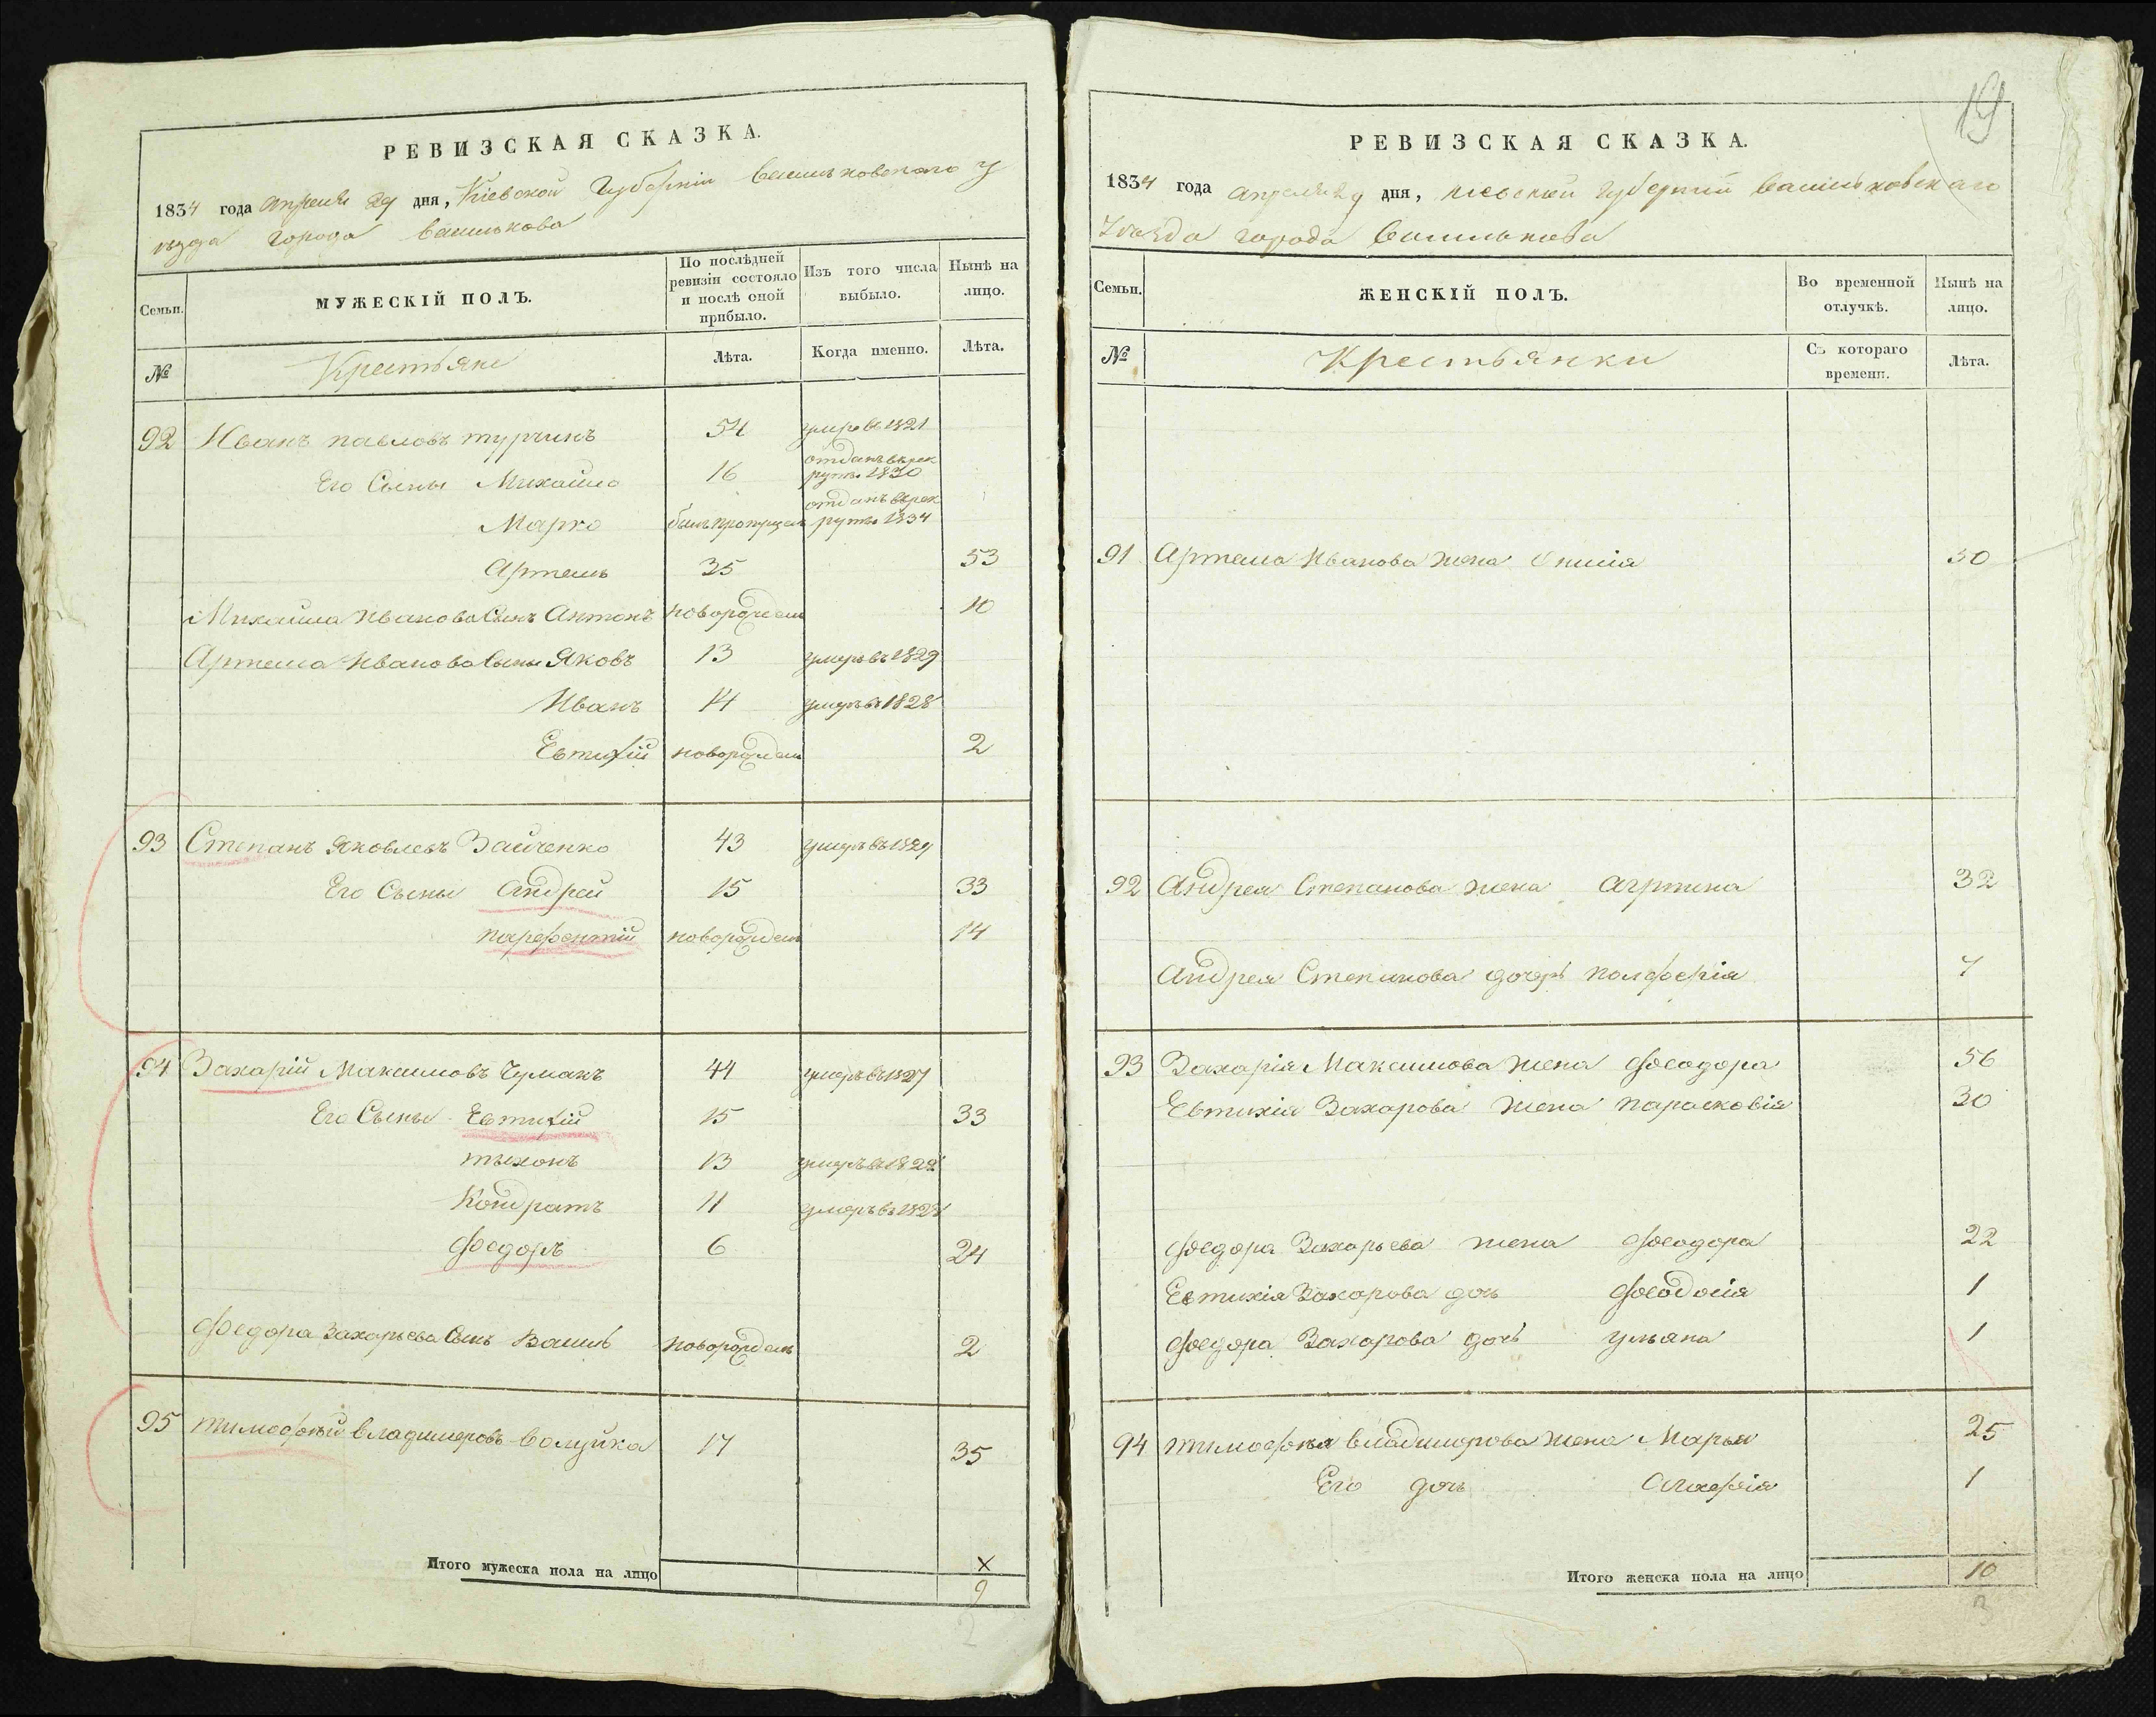 РЕВИЗСКАЯ СКАЗКА.
1834 года апреля 29 дня, Кіевской Губерніи Васильковского У
ѣзда города Василькова
Семьи.
МУЖЕСКІЙ ПОЛЪ.
По послѣдней ревизіи состояло и послѣ оной прибыло.
Изъ того числа выбыло.
Нынѣ на лицо.
№
Крестьяне
Лѣта.
Когда именно.
Лѣта.
92 Иванъ павловъ турчинъ 54 умре въ 1821
Его Сыны Михайло 16 отданъ въ рек руты 1830
Марко былъ пропущенъ отданъ в рек руты 1834
Артемъ 35 53
Михайла Иванова Сынъ Антонъ новорожден 10
Артема Иванова Сыны Яковъ 13 умеръ въ 1829
Иванъ 14 умеръ въ 1828
Евтихій новорожден 2
93 Степанъ Яковлевъ Зайченко 43 умеръ въ 1829
Его Сыны Андрей 15 33
парфентий новорожден 14
94 Захарій Максимовъ Чумакъ 44 умеръ въ 1827
Его Сыны Евтихій 15 33
тихонъ 13 умеръ в 1822
Кондратъ 11 умеръ въ 1828
Федоръ 6 24
Федора Захарьева Сынъ Василь новорожденъ 2
95 тимофѣй владимеровъ 17 35
Итого мужеска пола на лицо
×
9
2
19
РЕВИЗСКАЯ СКАЗКА.
1834 года апреля 29 дня, киевской губернии Васильковскаго
Уѣзда города Василькова
Семьи.
ЖЕНСКІЙ ПОЛЪ.
Во временной отлучкѣ.
Нынѣ на лицо.
№
Крестьянки
Съ котораго времени.
Лѣта.
91 Артема Иванова жена 50
92 Андрея Степанова жена 32
Андрея Степанова дочерь 7
93 Захарія Максимова жена Феодора 56
Евтихія Захарова жена парасковія 30
Федора Захарьева жена Феодора 22
Евтихія Захарова дочь Феодосія 1
Федора Захарова дочь ульяна 1
94 тимофѣя владимирова жена Марья 25
Его дочь 1
Итого женска пола на лицо 10
3